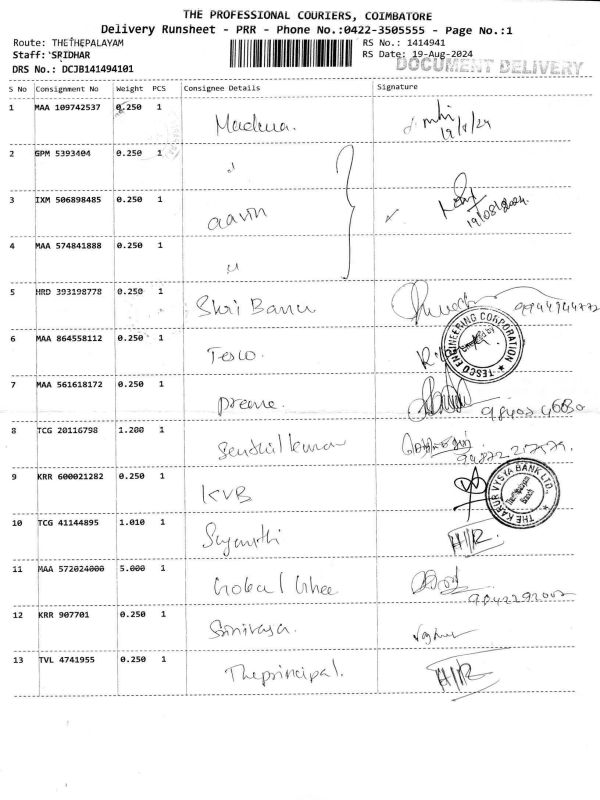 THE PROFESSIONAL COURIERS, COIMBATORE
Delivery Runsheet - PRR - Phone No.:0422-3505555 - Page No.:1
Route: THETHEPALAYAM
RS No.: 1414941
Staff: SRIDHAR
RS Date: 19-Aug-2024
DOCUMENT DELIVERY
DRS No.: DCJB141494101
S No Consignment No Weight PCS Consignee Details Signature
1 MAA 109742537 0.250 1 Madena. 19/8/24
2 GPM 5393404 0.250 1 "
3 IXM 506898485 0.250 1 aavin 19/08/2024.
4 MAA 574841888 0.250 1 "
5 HRD 393198778 0.250 1 Shri Banu
6 MAA 864558112 0.250 1 Tesco.
TESCO ENGINEERING CORPORATION
7 MAA 561618172 0.250 1 preme.
8 TCG 20116798 1.200 1 Senthilkumar
9 KRR 600021282 0.250 1 KVB
THE KARUR VYSYA BANK LTD.
Thethipalayam
Branch
10 TCG 41144895 1.010 1 Sujanthi H/R.
11 MAA 572024000 5.000 1 Gokal Ghee
9842292007
12 KRR 907701 0.250 1 Srinivasa.
13 TVL 4741955 0.250 1 The principal. H/R